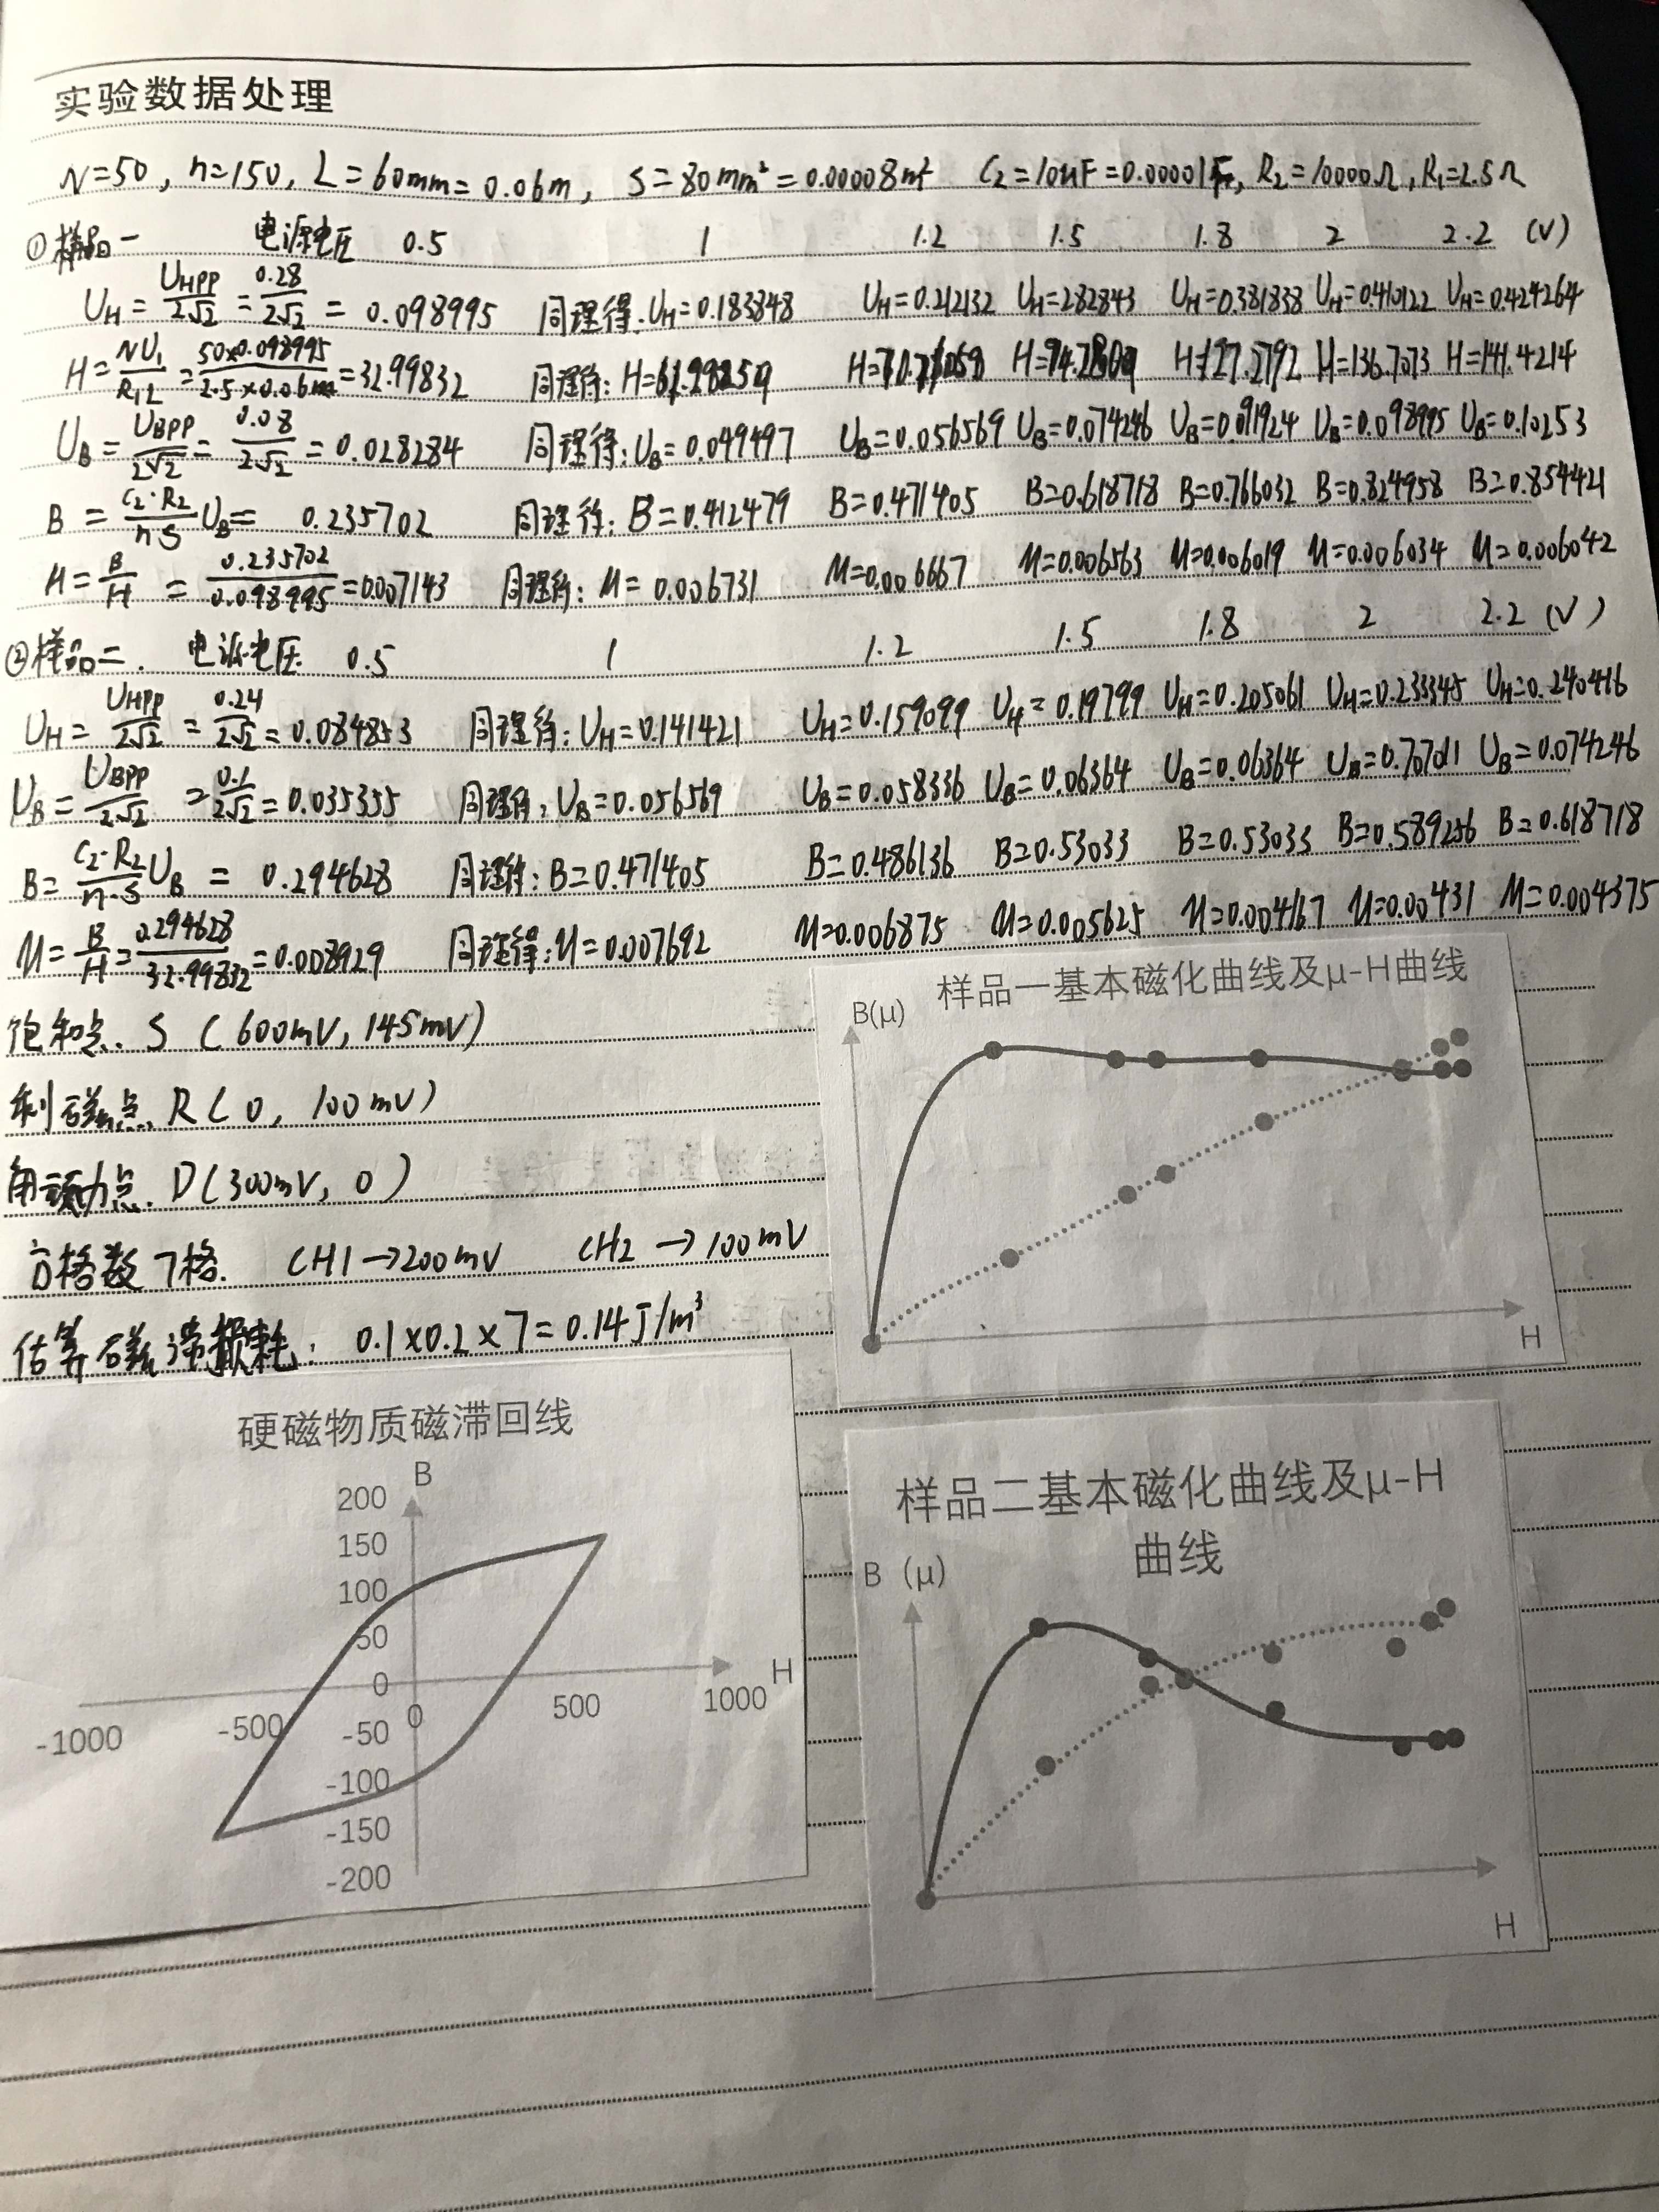 实验数据处理
N=50, n=150, L=60mm=0.06m, S=80mm²=0.00008m² C₂=10uF=0.00001F, R₂=10000Ω, R₁=2.5Ω
①样品一 电源电压 0.5 1 1.2 1.5 1.8 2 2.2 (V)
U_H = U_HPP/2√2 = 0.28/2√2 = 0.098995 同理得: U_H=0.183848 U_H=0.212132 U_H=282843 U_H=0.381838 U_H=0.410122 U_H=0.424264
H = NU₁/R₁L = 50×0.098995/2.5×0.06m = 32.99832 同理得: H=61.28259 H=70.71068 H=94.28090 H=127.2792 H=136.7073 H=141.4214
U_B = U_BPP/2√2 = 0.08/2√2 = 0.028284 同理得: U_B=0.049497 U_B=0.056569 U_B=0.074246 U_B=0.091924 U_B=0.098995 U_B=0.10253
B = C₂·R₂/nS U_B = 0.235702 同理得: B=0.412479 B=0.471405 B=0.618718 B=0.766032 B=0.824958 B=0.854421
M = B/H = 0.235702/0.098995 = 0.007143 同理得: M=0.006731 M=0.006667 M=0.006563 M=0.006019 M=0.006034 M=0.006042
②样品二. 电源电压 0.5 1 1.2 1.5 1.8 2 2.2 (V)
U_H = U_HPP/2√2 = 0.24/2√2 = 0.084853 同理得: U_H=0.141421 U_H=0.159099 U_H=0.19799 U_H=0.205061 U_H=0.233345 U_H=0.240416
U_B = U_BPP/2√2 = 0.1/2√2 = 0.035355 同理得: U_B=0.056569 U_B=0.058336 U_B=0.06364 U_B=0.06364 U_B=0.70711 U_B=0.074246
B = C₂·R₂/n·S U_B = 0.294628 同理得: B=0.471405 B=0.486136 B=0.53033 B=0.53033 B=0.589256 B=0.618718
M = B/H = 0.294628/32.99832 = 0.008929 同理得: M=0.007692 M=0.006875 M=0.005625 M=0.004167 M=0.00431 M=0.004375
饱和点. S (600mV, 145mV)
剩磁点. R (0, 100mV)
矫顽力点. D (300mV, 0)
方格数 7格. CH1→200mV CH2→100mV
估算磁滞损耗: 0.1×0.2×7=0.14J/m³
样品一基本磁化曲线及μ-H曲线
B(μ)
H
硬磁物质磁滞回线
B
200
150
100
50
0
-50
-100
-150
-200
-1000 -500 0 500 1000
H
样品二基本磁化曲线及μ-H
曲线
B (μ)
H